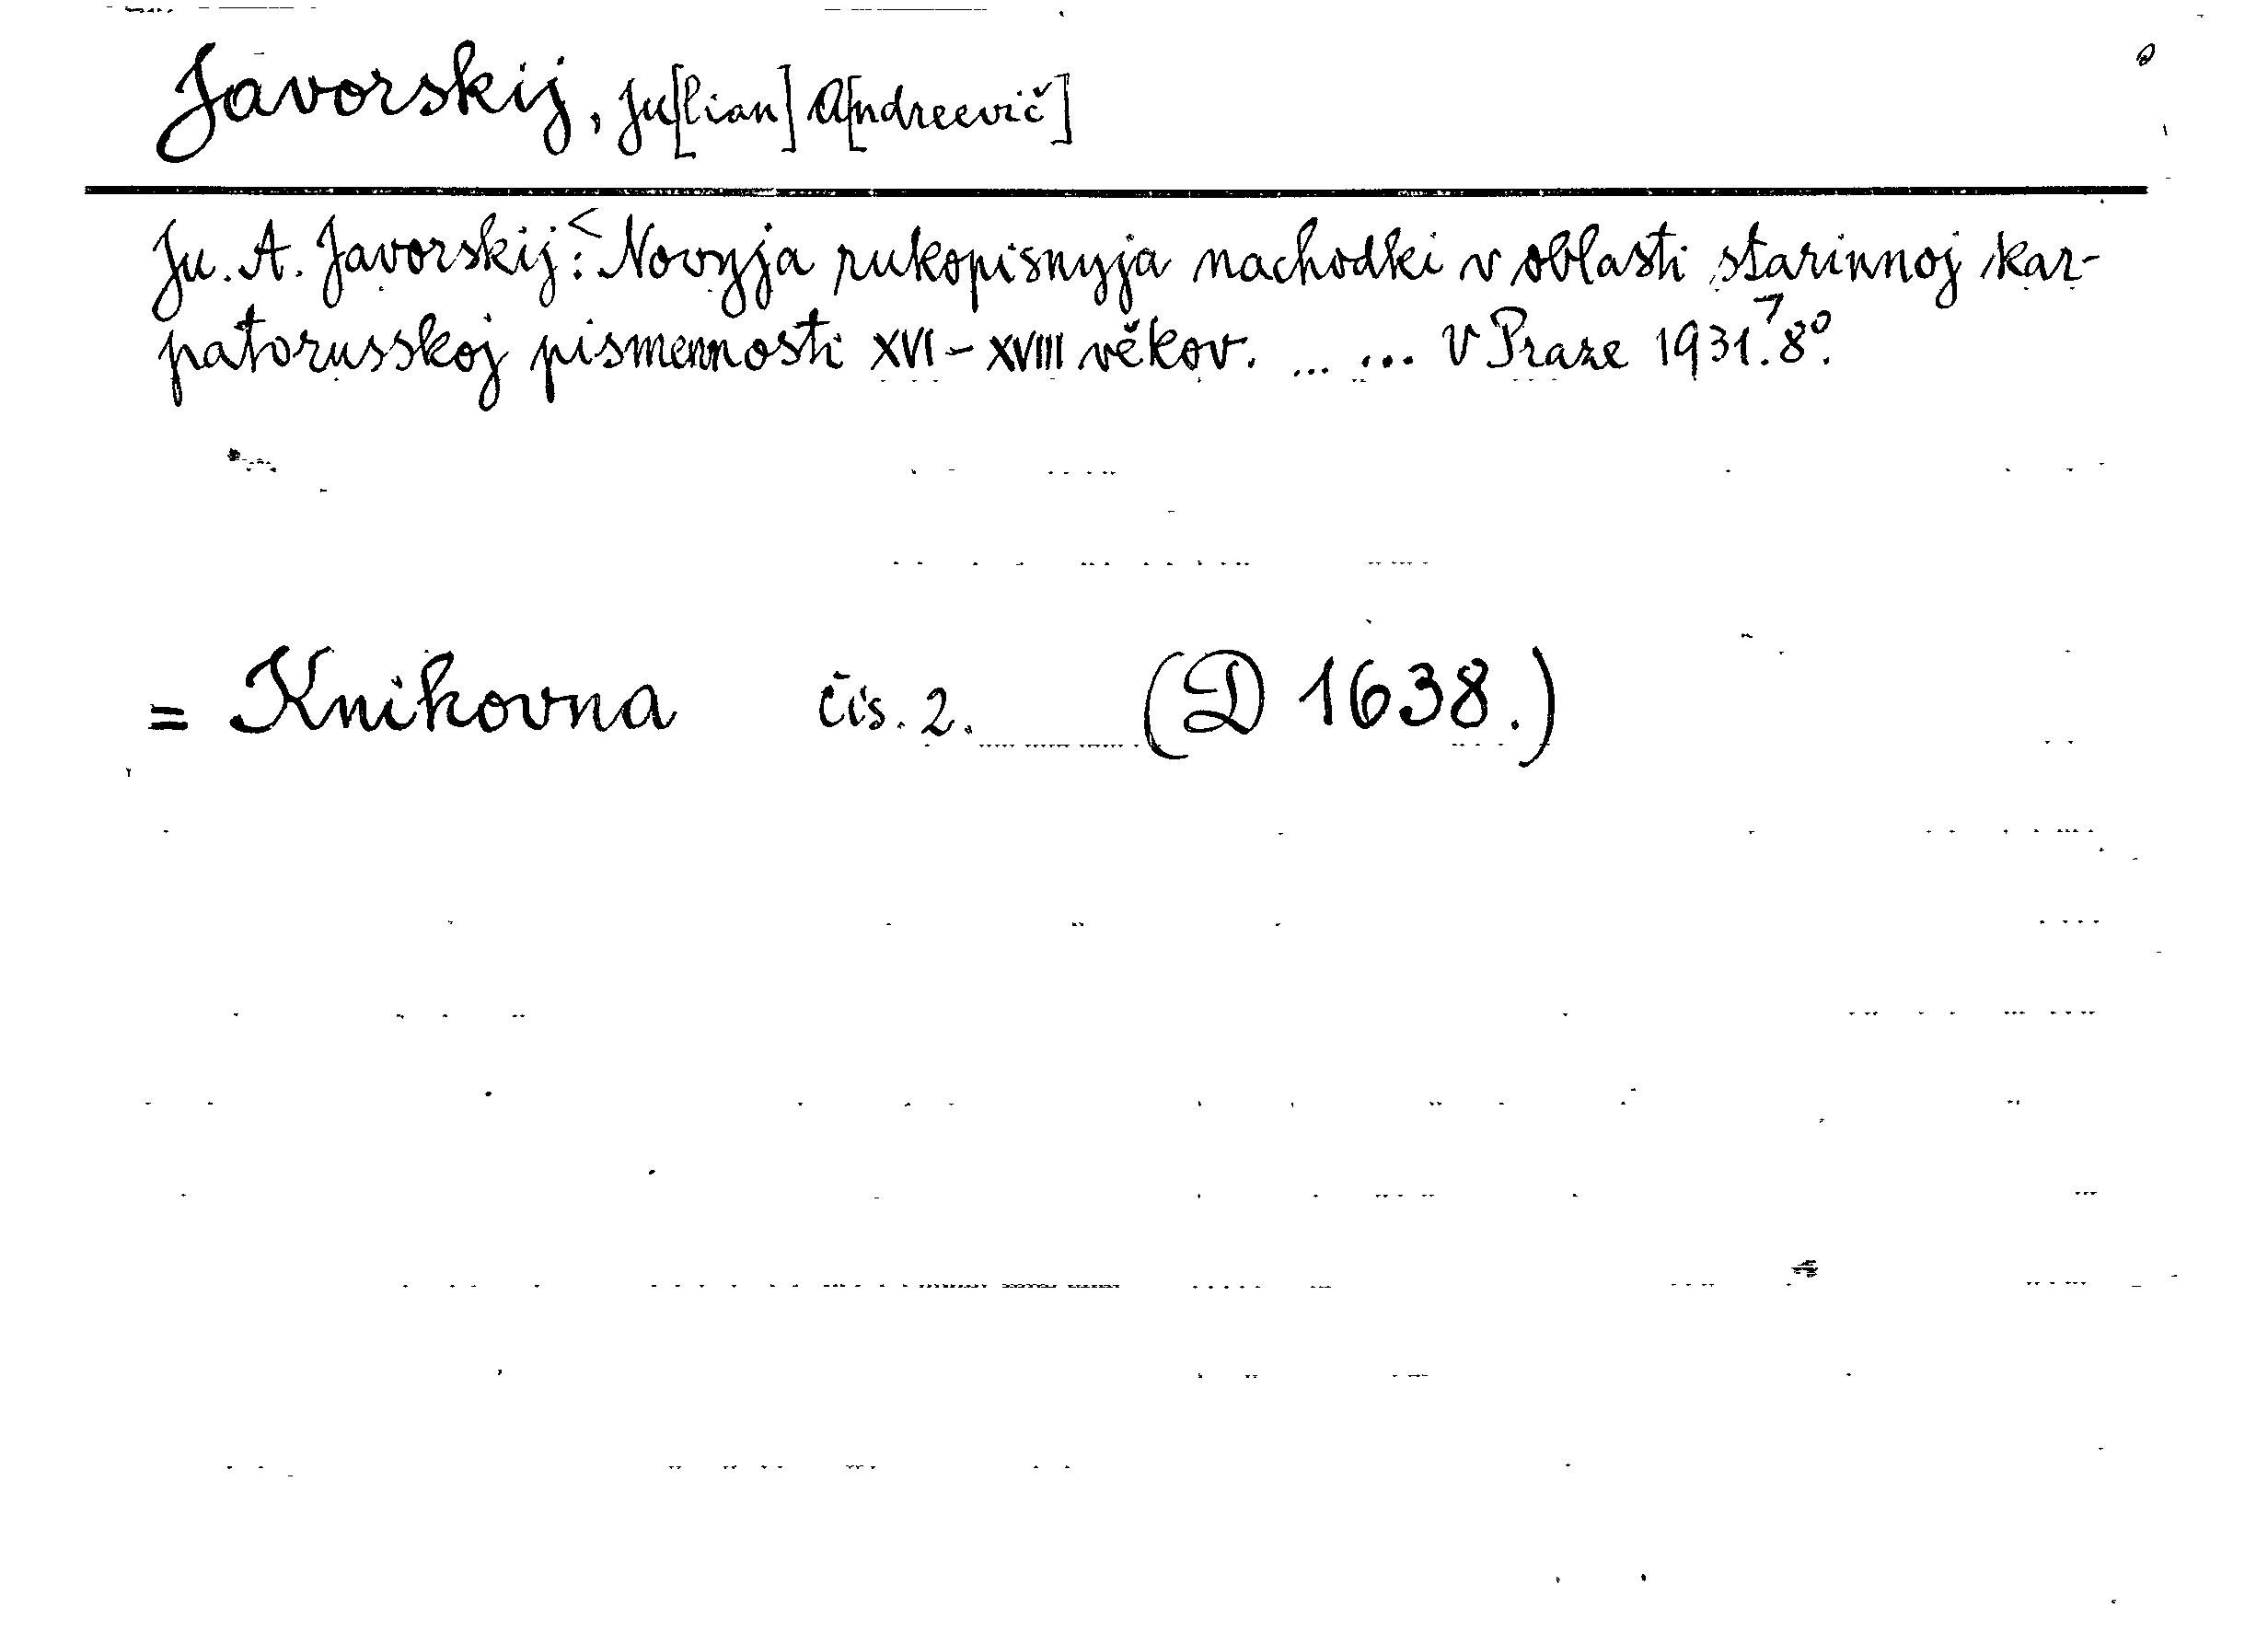 Javorskij, Ju[lian] A[ndreevič]
Ju. A. Javorskij: <Novyja rukopisnyja nachodki v oblasti starinnoj kar-
patorusskoj pismennosti XVI – XVIII věkov. ... ... V Praze 1931.> 8°.
= Knihovna čís. 2. (D 1638.)